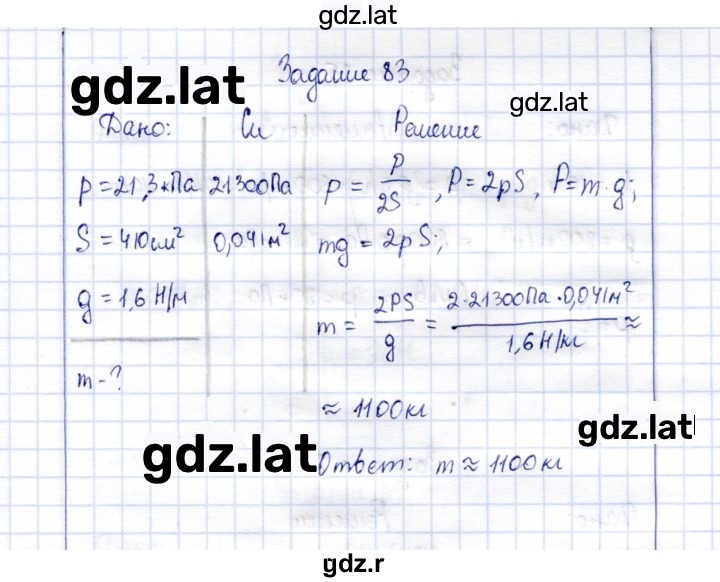 gdz.lat
Задание 83
gdz.lat
gdz.lat
Дано: Си Решение
p = 21,3 кПа 21300Па p = P/2S, P = 2pS, P = m·g;
S = 410 см² 0,041 м² mg = 2pS;
g = 1,6 Н/м m = 2PS/g = 2·21300Па·0,041м²/1,6 Н/кг ≈
m - ?
≈ 1100 кг
gdz.lat
gdz.lat
Ответ: m ≈ 1100 кг
gdz.r